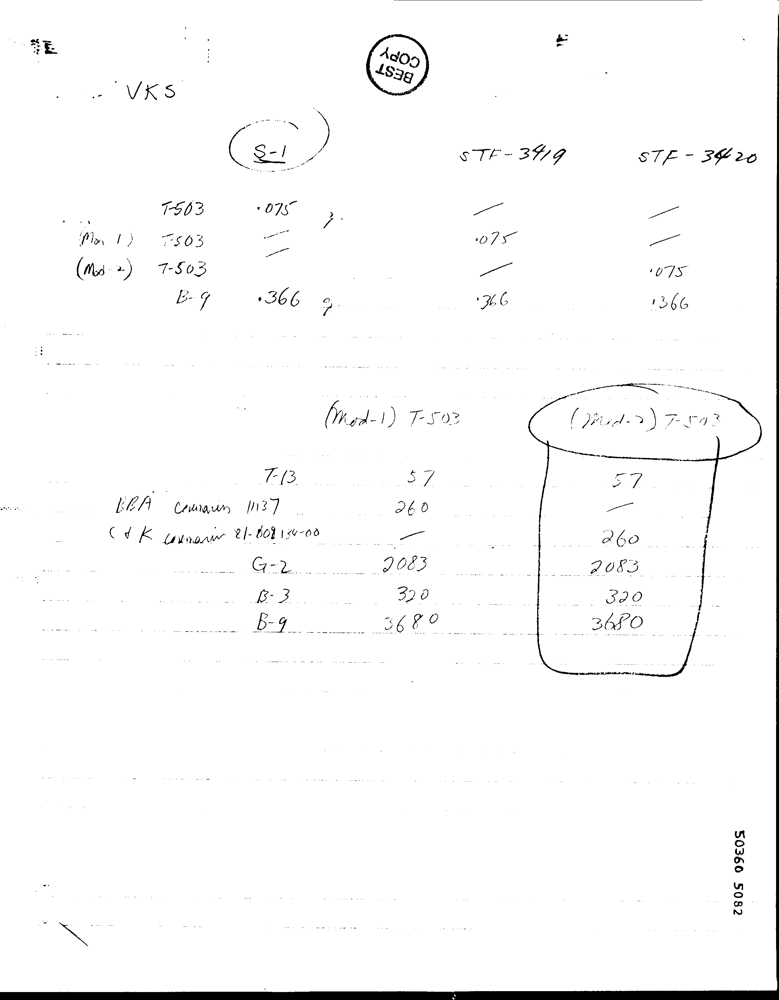 BEST
COPY
VKS
S-1 STF-3419 STF-3420
T-503 .075 g. — —
(Mod-1) T-503 — .075 —
(Mod-2) T-503 — — .075
B-9 .366 g. .366 .366
(Mod-1) T-503 (Mod-2) T-503
T-13 57 57
11137 260 —
C & K 260
— 
G-2 2083 2083
B-3 320 320
B-9 3680 3680
50360 5082